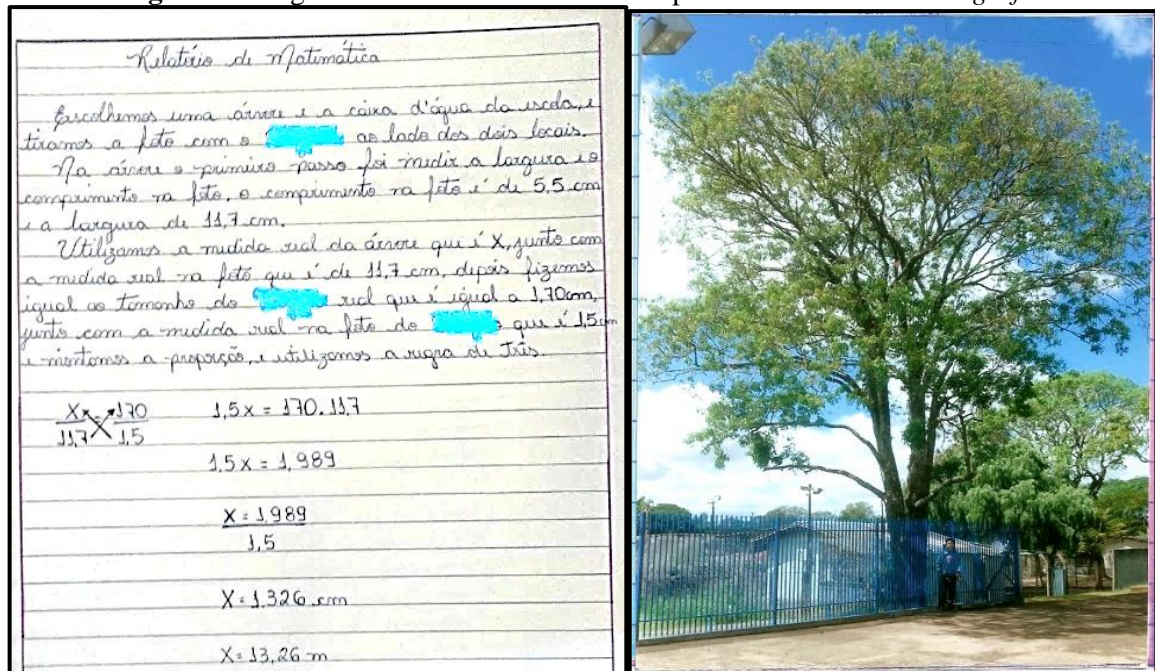 Relatório de Matemática
Escolhemos uma árvore e a caixa d'água da escola, e
tiramos a foto com o ao lado dos dois locais.
Na árvore o primeiro passo foi medir a largura e o
comprimento na foto, o comprimento na foto é de 5,5 cm
e a largura de 11,7 cm.
Utilizamos a medida real da árvore que é X, junto com
a medida real na foto que é de 11,7 cm, depois fizemos
igual ao tamanho do real que é igual a 1,70cm,
junto com a medida real na foto do que é 1,5cm
e montamos a proporção, e utilizamos a regra de três.
X 170 1,5x = 170.11,7
11,7 1,5
1,5x = 1,989
X = 1,989
1,5
X = 1,326 cm
X = 13,26 m